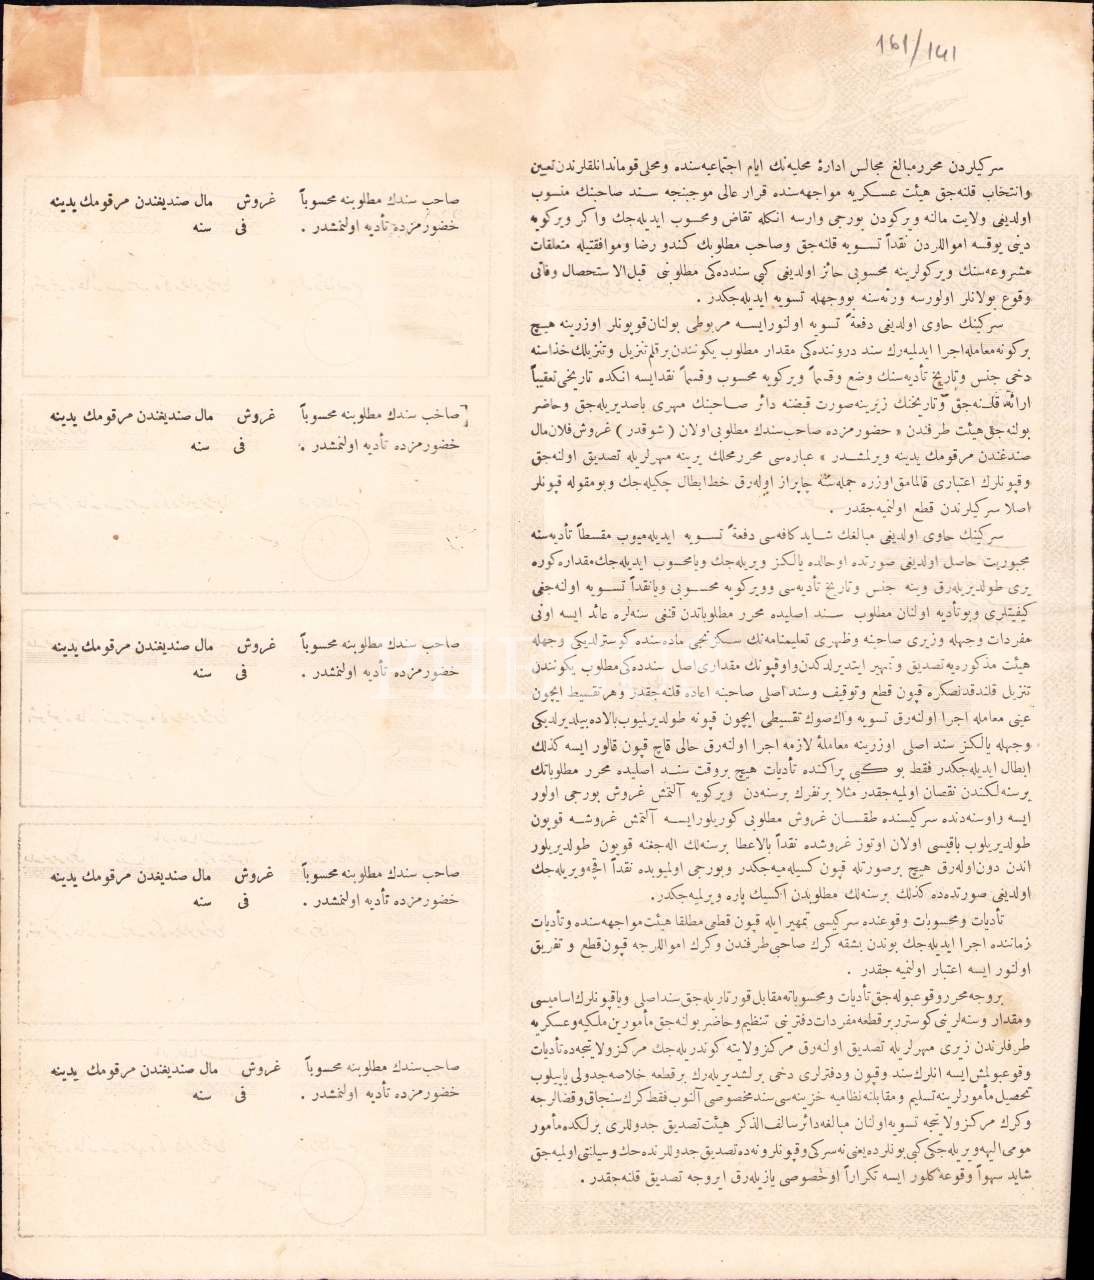 161/141
سركيلردن محرر مبالغ مجالس ادارۀ محليه‌نك ايام اجتماعيه‌سنده و محلی قومانداننلقلرندن تعيين
وانتخاب قلنه‌جق هيئت عسكريه مواجهه‌سنده قرار عالی موجبنجه سند صاحبنك منسوب
اولديغی ولايت مالنه ويركودن بورجی وارسه انكله تقاض ومحسوب ايديله‌جك واكر ويركويه
دينی يوقسه اموالردن نقداً تسويه قلنه‌جق وصاحب مطلوبك كندو رضا وموافقتيله متعلقات
مشروعه‌سنك ويركولرينه محسوبی حائز اولديغی كبی سنده‌كی مطلوبنی قبل الاستحصال وفاتی
وقوع بولانلر اولورسه ورثه‌سنه بووجهله تسويه ايديله‌جكدر .
سركينك حاوی اولديغی دفعةً تسويه اولنورايسه مربوطی بولنان قوپونلر اوزرينه هيچ
بركونه معامله اجرا ايدلميه‌رك سند دروننده‌كی مقدار مطلوب يكونندن برقلم تنزيل وتنزيلك حذاسنه
دخی جنس وتاريخ تأديه‌سنك وضع وقسماً ويركويه محسوب وقسماً نقدايسه انكده تاريخی تعقيباً
ارائه قلنه‌جق وتاريخنك زيرينه صورت قبضنه دائر صاحبنك مهری باصديريله‌جق وحاضر
بولنه‌جق هيئت طرفندن « حضورمزده صاحب سندك مطلوبی اولان ( شوقدر ) غروش فلان مال
صندغندن مرقومك يدينه ويرلمشدر » عباره‌سی محرر محلك يرينه مهرلريله تصديق اولنه‌جق
وقپونلرك اعتباری قالمامق اوزره جمله‌سنه چاپراز اوله‌رق خط ابطال چكيله‌جك وبومقوله قپونلر
اصلا سركيلرندن قطع اولنميه‌جقدر .
سركينك حاوی اولديغی مبالغك شايد كافه‌سی دفعةً تسويه ايديله‌ميوب مقسطاً تأديه‌سنه
مجبوريت حاصل اولديغی صورتده اوحالده يالكز ويريله‌جك ويامحسوب ايديله‌جك مقداره كوره
يری طولديريله‌رق وينه جنس وتاريخ تأديه‌سی وويركويه محسوبی ويانقداً تسويه اولنه‌جغی
كيفيتلری وبوتأديه اولنان مطلوب سند اصليده محرر مطلوباتدن قنغی سنه‌لره عائد ايسه اونی
مفردات وجهله وزيری صاحبنه وظهری تعليمنامه‌نك سكزنجی ماده‌سنده كوسترلديكی وجهله
هيئت مذكوره‌يه تصديق وتمهير ايتديرلدكدن واوقپونك مقداری اصل سنده‌كی مطلوب يكونندن
تنزيل قلندقدنصكره قپون قطع وتوقيف وسند اصلی صاحبنه اعاده قلنه‌جقدر وهر تقسيط ايچون
عينی معامله اجرا اولنه‌رق تسويه واك صوك تقسيطی ايچون قپونه طولديرلميوب بالاده بيلديرلديكی
وجهله يالكز سند اصلی اوزرينه معاملۀ لازمه اجرا اولنه‌رق حالی قاچ قپون قالور ايسه كذلك
ابطال ايديله‌جكدر فقط بو كبی پراكنده تأديات هيچ بروقت سند اصليده محرر مطلوباتك
برسنه‌لكندن نقصان اولميه‌جقدر مثلا برنفرك برسنه‌دن ويركويه آلتمش غروش بورجی اولور
ايسه واوسنه‌دنده سركيسنده طقسان غروش مطلوبی كوريلورايسه آلتمش غروشه قوپون
طولديريلوب باقيسی اولان اوتوز غروشده نقداً بالاعطا برسنه‌لك اله‌جغنه قوپون طولديريلور
اندن دون اوله‌رق هيچ برصورتله قپون كسيله‌ميه‌جكدر وبورجی اولميوبده نقداً اقچه ويريله‌جك
اولديغی صورتده‌ده كذلك برسنه‌لك مطلوبدن اكسيك پاره ويرلميه‌جكدر.
تأديات ومحسوبات وقوعنده سركيسی تمهير ايله قپون قطعی مطلقا هيئت مواجهه‌سنده وتأديات
زماننده اجرا ايديله‌جك بوندن بشقه كرك صاحبی طرفندن وكرك اموالرجه قپون قطع و تفريق
اولنور ايسه اعتبار اولنميه جقدر .
بروجه محرر وقوعبوله‌جق تأديات ومحسوباته مقابل قورتاريله‌جق سند اصلی وياقپونلرك اساميسی
ومقدار وسنه‌لرينی كوسترر برقطعه مفردات دفترينی تنظيم وحاضر بولنه‌جق مأمورين ملكيه وعسكريه
طرفلرندن زيری مهرلريله تصديق اولنه‌رق مركز ولايته كوندريله‌جك مركز ولايتجه‌ده تأديات
وقوعبولمش ايسه انلرك سند وقپون ودفترلری دخی برلشديريله‌رك برقطعه خلاصه جدولی ياپيلوب
تحصيل مأمورلرينه تسليم ومقابلنه نظاميه خزينه‌سی سند مخصوصی آلنوب فقط كرك سنجاق وقضالرجه
وكرك مركز ولايتجه تسويه اولنان مبالغه دائر سالف الذكر هيئت تصديق جدوللری برلكده مأمور
مومی اليهه ويريله‌جكی كبی بونلرده يعنی نه سركی وقپونلرونه‌ده تصديق جدوللرنده حك وسيلنتی اولميه‌جق
شايد سهواً وقوعه كلور ايسه تكراراً اوخصوصی يازيله‌رق ايروجه تصديق قلنه‌جقدر .
صاحب سندك مطلوبنه محسوباً غروش مال صنديغندن مرقومك يدينه
حضورمزده تأديه اولنمشدر . فی سنه
صاحب سندك مطلوبنه محسوباً غروش مال صنديغندن مرقومك يدينه
حضورمزده تأديه اولنمشدر . فی سنه
صاحب سندك مطلوبنه محسوباً غروش مال صنديغندن مرقومك يدينه
حضورمزده تأديه اولنمشدر . فی سنه
صاحب سندك مطلوبنه محسوباً غروش مال صنديغندن مرقومك يدينه
حضورمزده تأديه اولنمشدر . فی سنه
صاحب سندك مطلوبنه محسوباً غروش مال صنديغندن مرقومك يدينه
حضورمزده تأديه اولنمشدر . فی سنه